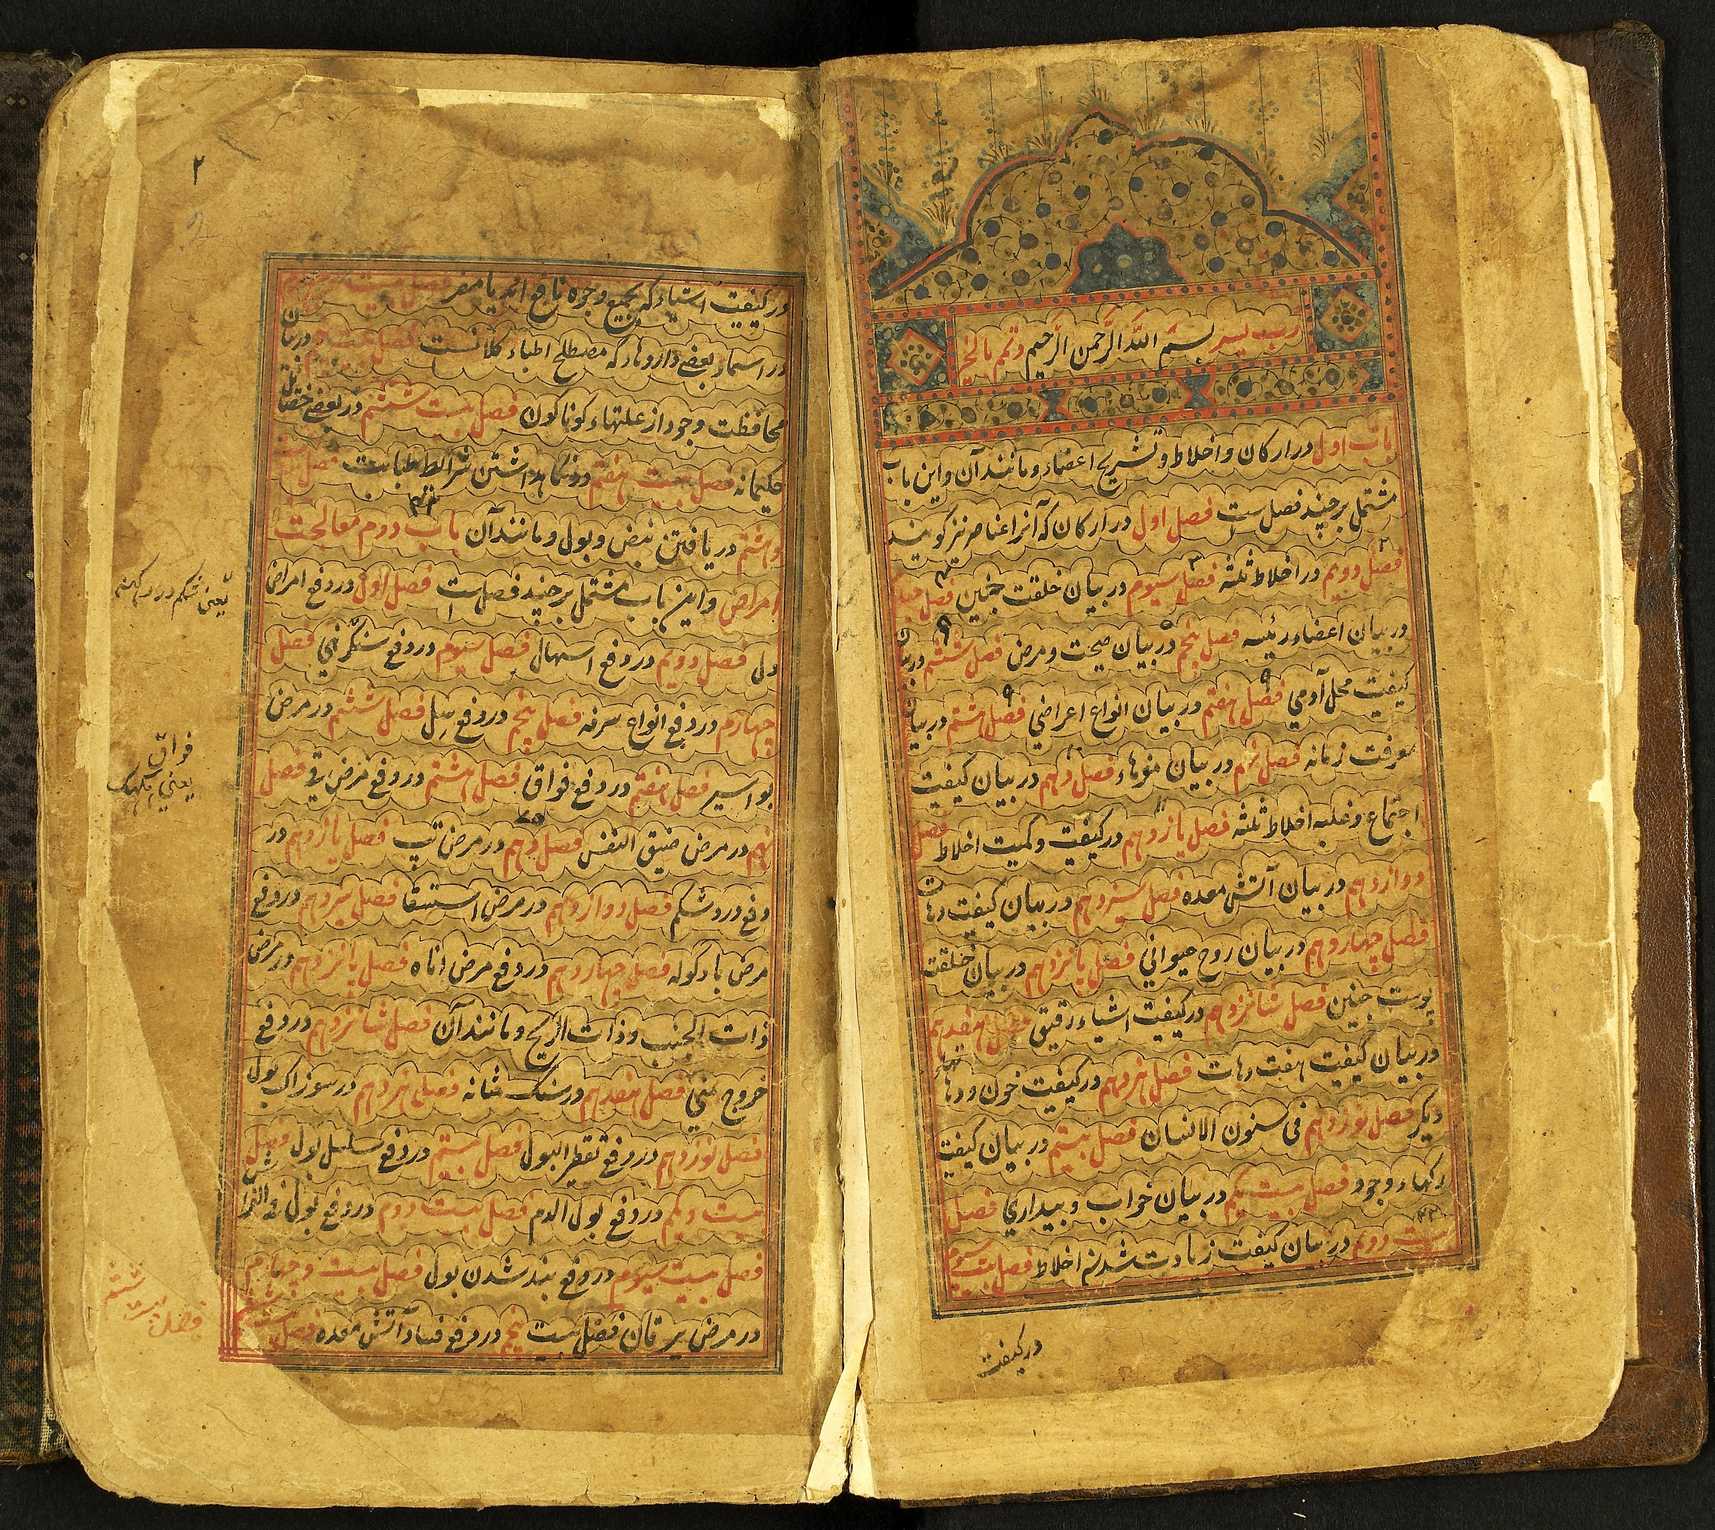 رب یسر بسم الله الرحمن الرحیم وتمم بالخیر
باب اول در ارکان و اخلاط و تشریح اعضاء و مانند آن و این باب
مشتمل بر چند فصل ست فصل اول در ارکان که آنرا عناصر نیز کویند
فصل دویم در اخلاط ثلثه فصل سیوم در بیان خلقت جنین فصل چهارم
در بیان اعضاء رئیسه فصل پنجم در بیان صحت و مرض فصل ششم در بیان
کیفیت محل آدمی فصل هفتم در بیان انواع اعراضی فصل هشتم در بیان
معرفت زمانه فصل نهم در بیان مزهاء فصل دهم در بیان کیفیت
اجتماع و غلبه اخلاط ثلثه فصل یازدهم در کیفیت و کمیت اخلاط فصل
دوازدهم در بیان آتش معده فصل سیزدهم در بیان کیفیت دهات
فصل چهاردهم در بیان روح حیوانی فصل پانزدهم در بیان خلقت
پوست جنین فصل شانزدهم در کیفیت اشیاء رقیق فصل هفدهم
در بیان کیفیت هفت دهات فصل هژدهم در کیفیت خون و دهاتهاء
دیکر فصل نوزدهم فی سنون الانسان فصل بیستم در بیان کیفیت
رکهاء وجود فصل بیست یکم در بیان خواب و بیداری فصل
بیست دویم در بیان کیفیت زیادت شدن اخلاط فصل بیست سیوم
در کیفیت
۲
در کیفیت اشیاء که بجمیع وجوه نافع اند یا مضر فصل بیست
در اسماء بعضی داروها که مصطلح اطباء کلانست فصل در بیان
محافظت وجود از علتهاء کوناکون فصل بیست ششم در بعضی خصایل
حکیمانه فصل بیست هفتم در نکاهداشتن شرایط طبابت فصل بیست
و هشتم در یافتن نبض و بول و مانند آن باب دوم معالجت
امراض و این باب مشتمل بر چند فصل ست فصل اول در دفع امراض
دل فصل دویم در دفع اسهال فصل سیوم در دفع سنکرنی فصل
چهارم در دفع انواع سرفه فصل پنجم در دفع سل فصل ششم در مرض
بواسیر فصل هفتم در دفع فواق فصل هشتم در دفع مرض قی فصل
نهم در مرض ضیق النفس فصل دهم در مرض تپ فصل یازدهم در
دفع درد شکم فصل دوازدهم در مرض استسقا فصل سیزدهم در دفع
مرض بادکوله فصل چهاردهم در دفع مرض اناه فصل پانزدهم در مرض
ذات الجنب و ذات الریح و مانند آن فصل شانزدهم در دفع
خروج منی فصل هفدهم در سنک مثانه فصل هژدهم در سوزاک بول
فصل نوزدهم در دفع تقطیر البول فصل بیستم در دفع سلسل بول فصل
بیست و یکم در دفع بول الدم فصل بیست دوم در دفع بول فی الفراش
فصل بیست سیوم در دفع بند شدن بول فصل بیست و چهارم
در مرض یرقان فصل بیست پنجم در دفع فساد آتش معده فصل بیست ششم
فواق
یعنی
فصل بیست ششم